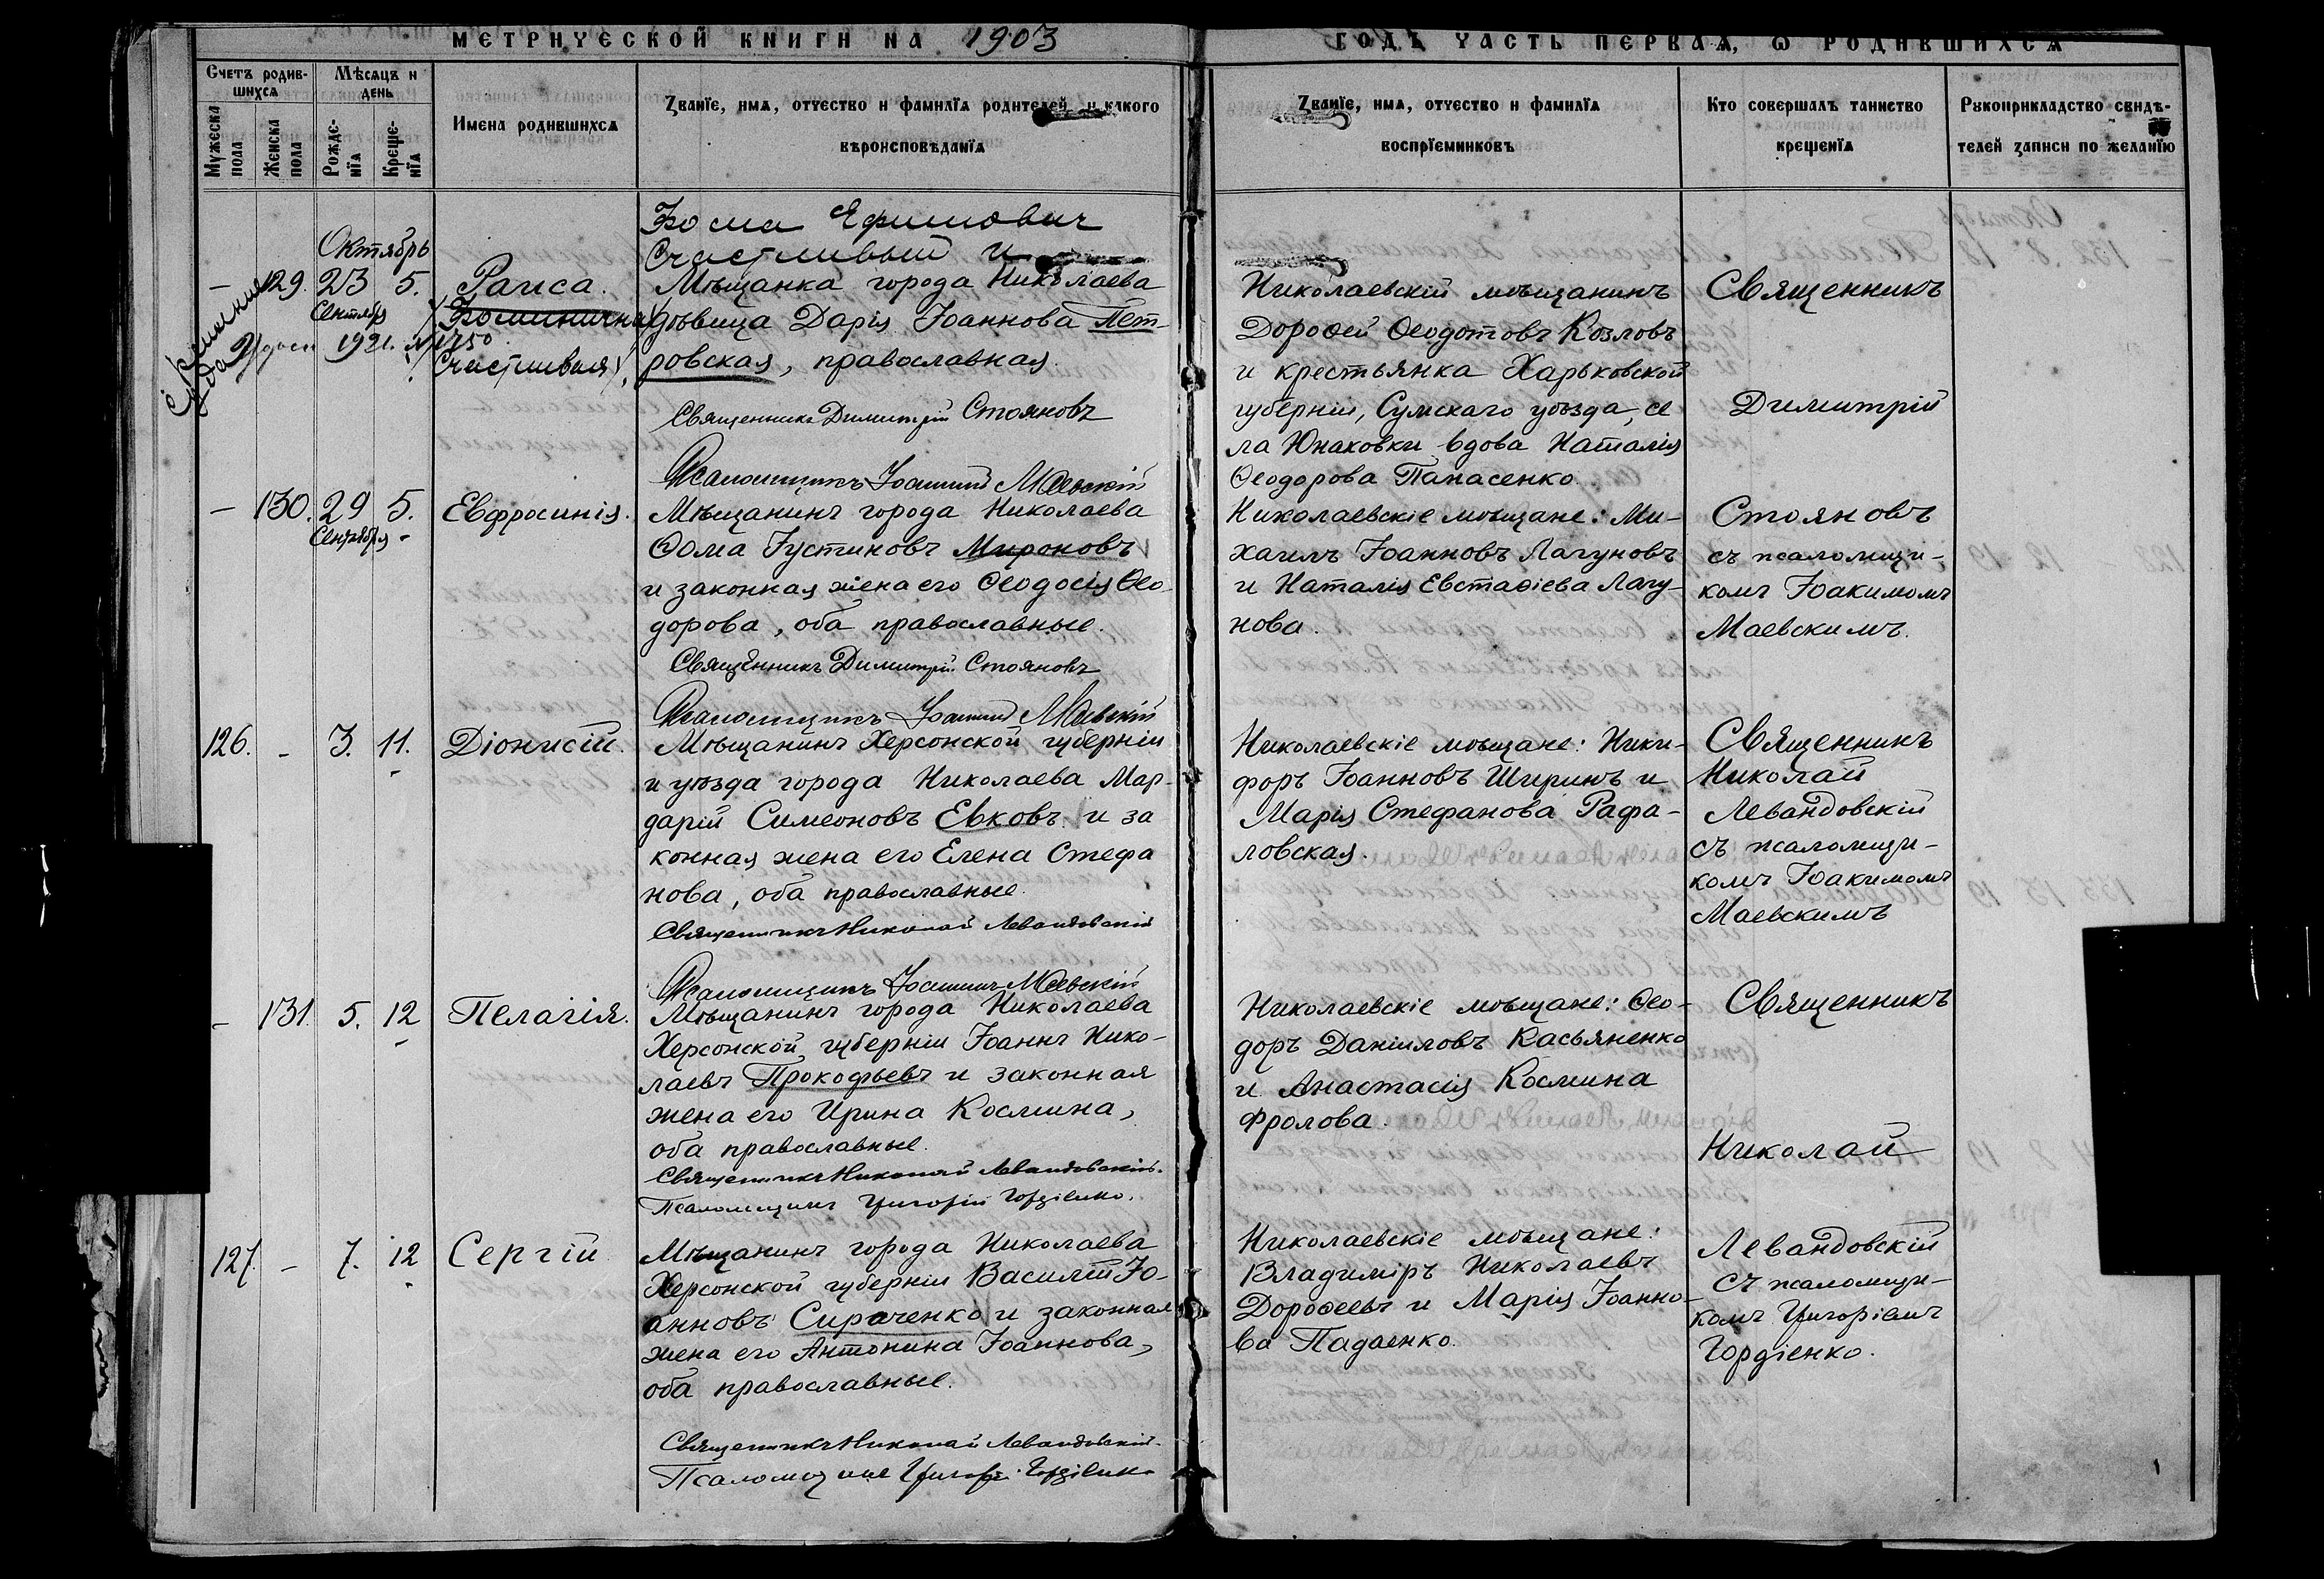 МЕТРИЧЕСКОЙ КНИГИ НА 1903
ГОДЪ ЧАСТЬ ПЕРВАЯ, Ѡ РОДИВШИХСЯ
Счетъ родив-
шихся
Мужеска
пола
Женска
пола
Мѣсяцъ и
день
Рожде-
нїя
Креще-
нїя
Имена родившихся
Званїе, имя, отчество и фамилїя родителей и какого
вѣроисповѣданїя
Званїе, имя, отчество и фамилїя
воспрїемниковъ
Кто совершалъ таинство
крещенїя
Рукоприкладство свидѣ-
телей записи по желанїю
Октябрь
– 129. 23 5.
Сентября
Раиса.
Фоминична
Счастливая
1921. №1750
Фома Ефимович
Счастливый и
Мѣщанка города Николаева
дѣвица Дарія Іоаннова Пет-
ровская, православная.
Священникъ Димитрій Стояновъ
Псаломщикъ Іоакимъ Маевскій
Николаевскій мѣщанинъ
Дороѳей Ѳеодотовъ Козловъ
и крестьянка Харьковской
губерніи, Сумскаго уѣзда, се
ла Юнаковки вдова Наталія
Ѳеодорова Панасенко.
Священникъ
Димитрій
– 130. 29 5.
Сентября
Евфросинія.
Мѣщанинъ города Николаева
Ѳома Іустиновъ Мироновъ
и законная жена его Ѳеодосія Ѳео-
дорова, оба православные.
Священникъ Димитрій Стояновъ
Псаломщикъ Іоакимъ Маевскій
Николаевскіе мѣщане: Ми-
хаилъ Іоанновъ Лагуновъ
и Наталія Евстаѳіева Лагу-
нова.
Стояновъ
съ псаломщи-
комъ Іоакимомъ
Маевскимъ.
126. – 3. 11.
Діонисій.
Мѣщанинъ Херсонской губерніи
и уѣзда города Николаева Мар-
дарій Симеоновъ Евковъ и за
конная жена его Елена Стефа
нова, оба православные.
Священникъ Николай Левандовскій
Псаломщикъ Іоакимъ Маевскій
Николаевскіе мѣщане: Ники-
форъ Іоанновъ Ширинъ и
Марія Стефанова Рафа-
ловская.
Священникъ
Николай
Левандовскій
съ псаломщи-
комъ Іоакимомъ
Маевскимъ
– 131. 5. 12
Пелагія.
Мѣщанинъ города Николаева
Херсонской губерніи Іоаннъ Нико-
лаевъ Прокофьевъ и законная
жена его Ирина Космина,
оба православные.
Священникъ Николай Левандовскій.
Псаломщикъ Григорій Гордіенко.
Николаевскіе мѣщане: Ѳео-
доръ Даніиловъ Касьяненко
и Анастасія Космина
Фролова.
Священникъ
Николай
127. – 7. 12
Сергій
Мѣщанинъ города Николаева
Херсонской губерніи Василій Іо-
анновъ Сираченко и законная
жена его Антонина Іоаннова,
оба православные.
Священникъ Николай Левандовскій.
Псаломщикъ Григорій Гордіенко
Николаевскіе мѣщане:
Владиміръ Николаевъ
Дороѳеевъ и Марія Іоанно-
ва Падаенко.
Левандовскій
съ псаломщи-
комъ Григоріемъ
Гордіенко.